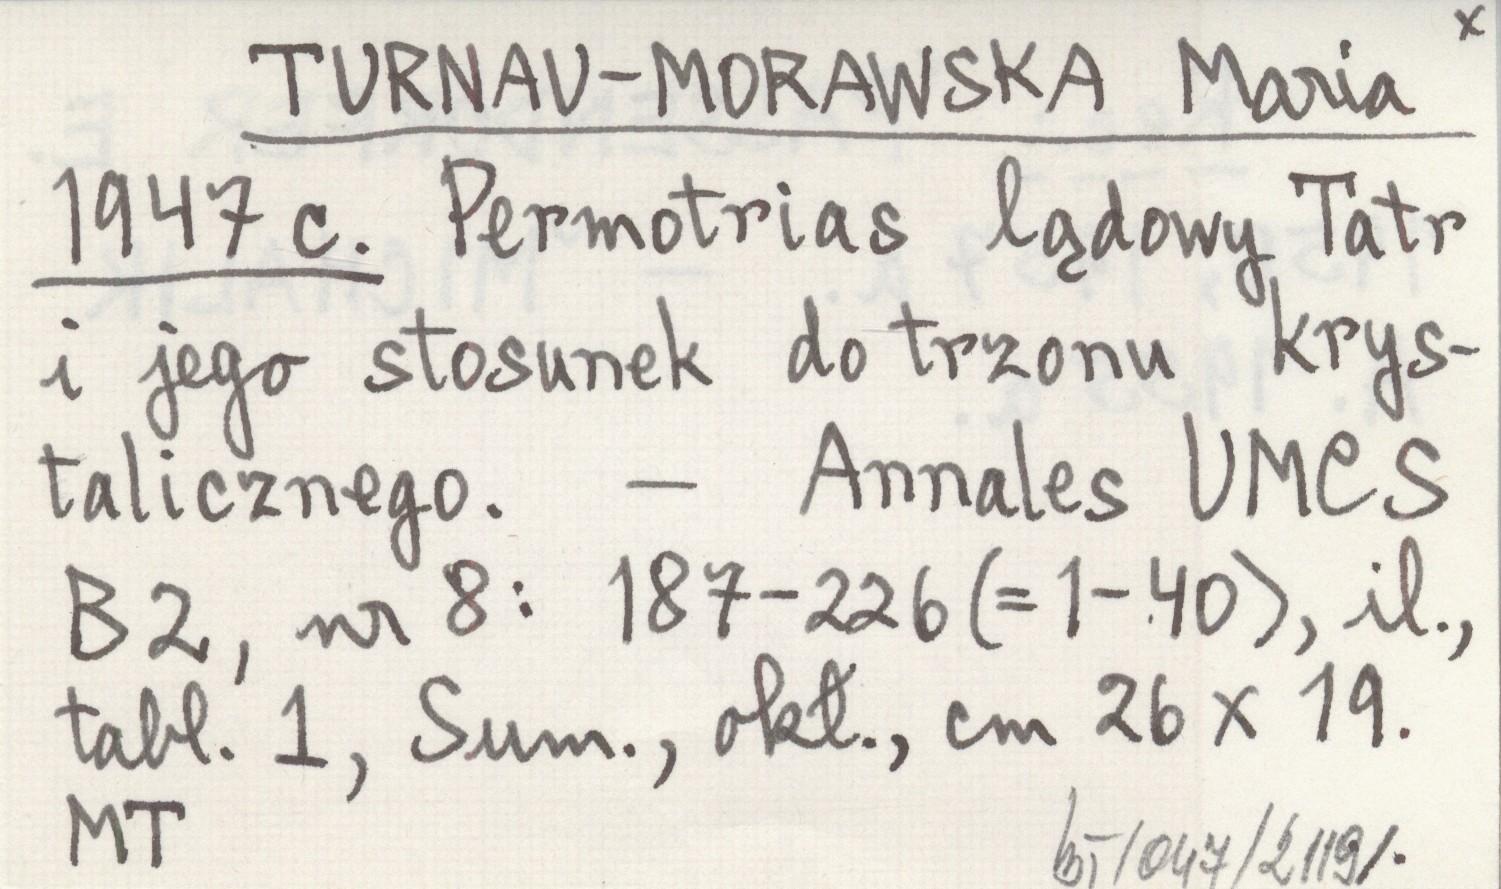 x
TURNAU-MORAWSKA Maria
1947 c. Permotrias lądowy Tatr
i jego stosunek do trzonu krys-
talicznego. — Annales UMCS
B2, nr 8: 187-226 (=1-40), il.,
tabl. 1, Sum., okł., cm 26 x 19.
MT